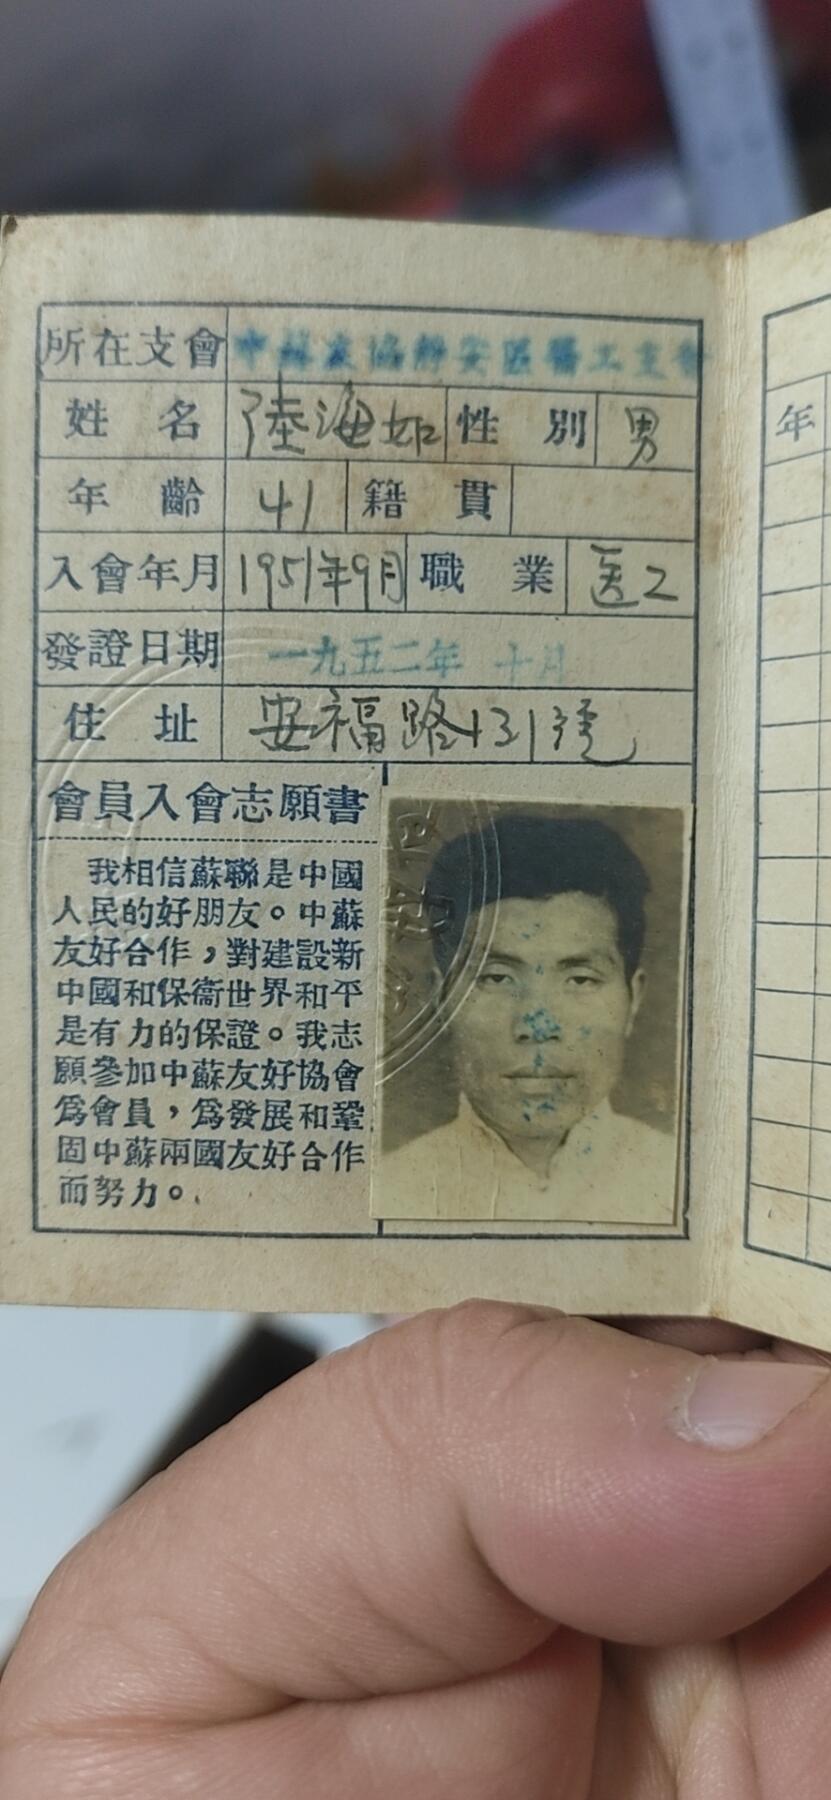 所在支會 中蘇友協靜安區醫工支會
姓名 陸海如 性別 男
年齡 41 籍貫
入會年月 1951年9月 職業 医工
發證日期 一九五二年 十月
住址 安福路131號
會員入會志願書
我相信蘇聯是中國
人民的好朋友。中蘇
友好合作，對建設新
中國和保衞世界和平
是有力的保證。我志
願參加中蘇友好協會
爲會員，爲發展和鞏
固中蘇兩國友好合作
而努力。
年